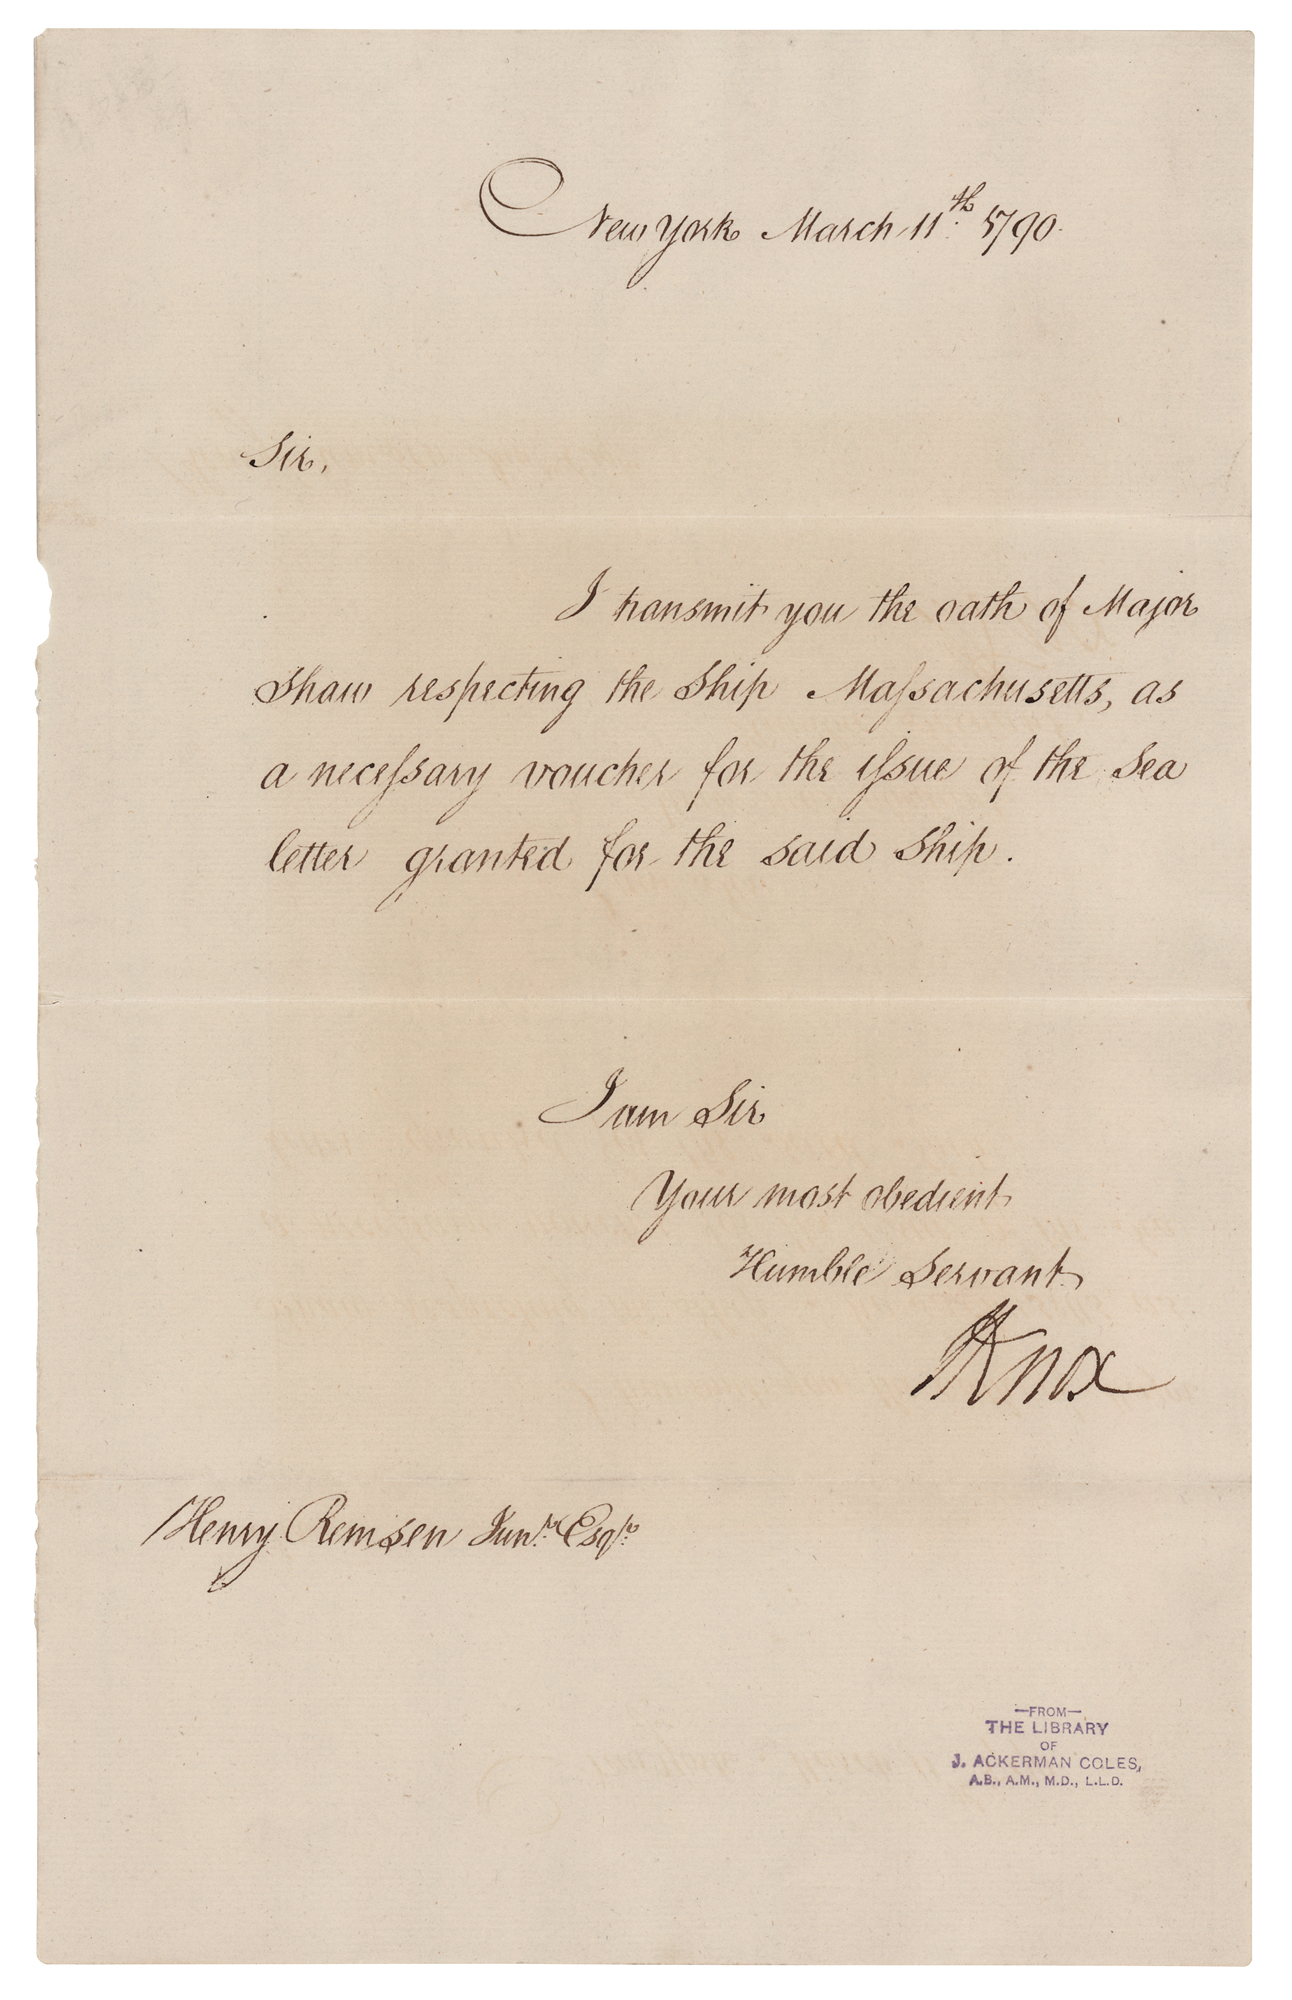 New York March 11th. 1790.
Sir,
I transmit you the oath of Major
Shaw respecting the Ship Maſsachusetts, as
a neceſsary voucher for the iſsue of the Sea
letter granted for the said Ship.
I am Sir
Your most obedient
Humble Servant
HKnox
Henry Remsen Junr. Esqr.
—FROM—
THE LIBRARY
OF
J. ACKERMAN COLES,
A.B., A.M., M.D., L.L.D.